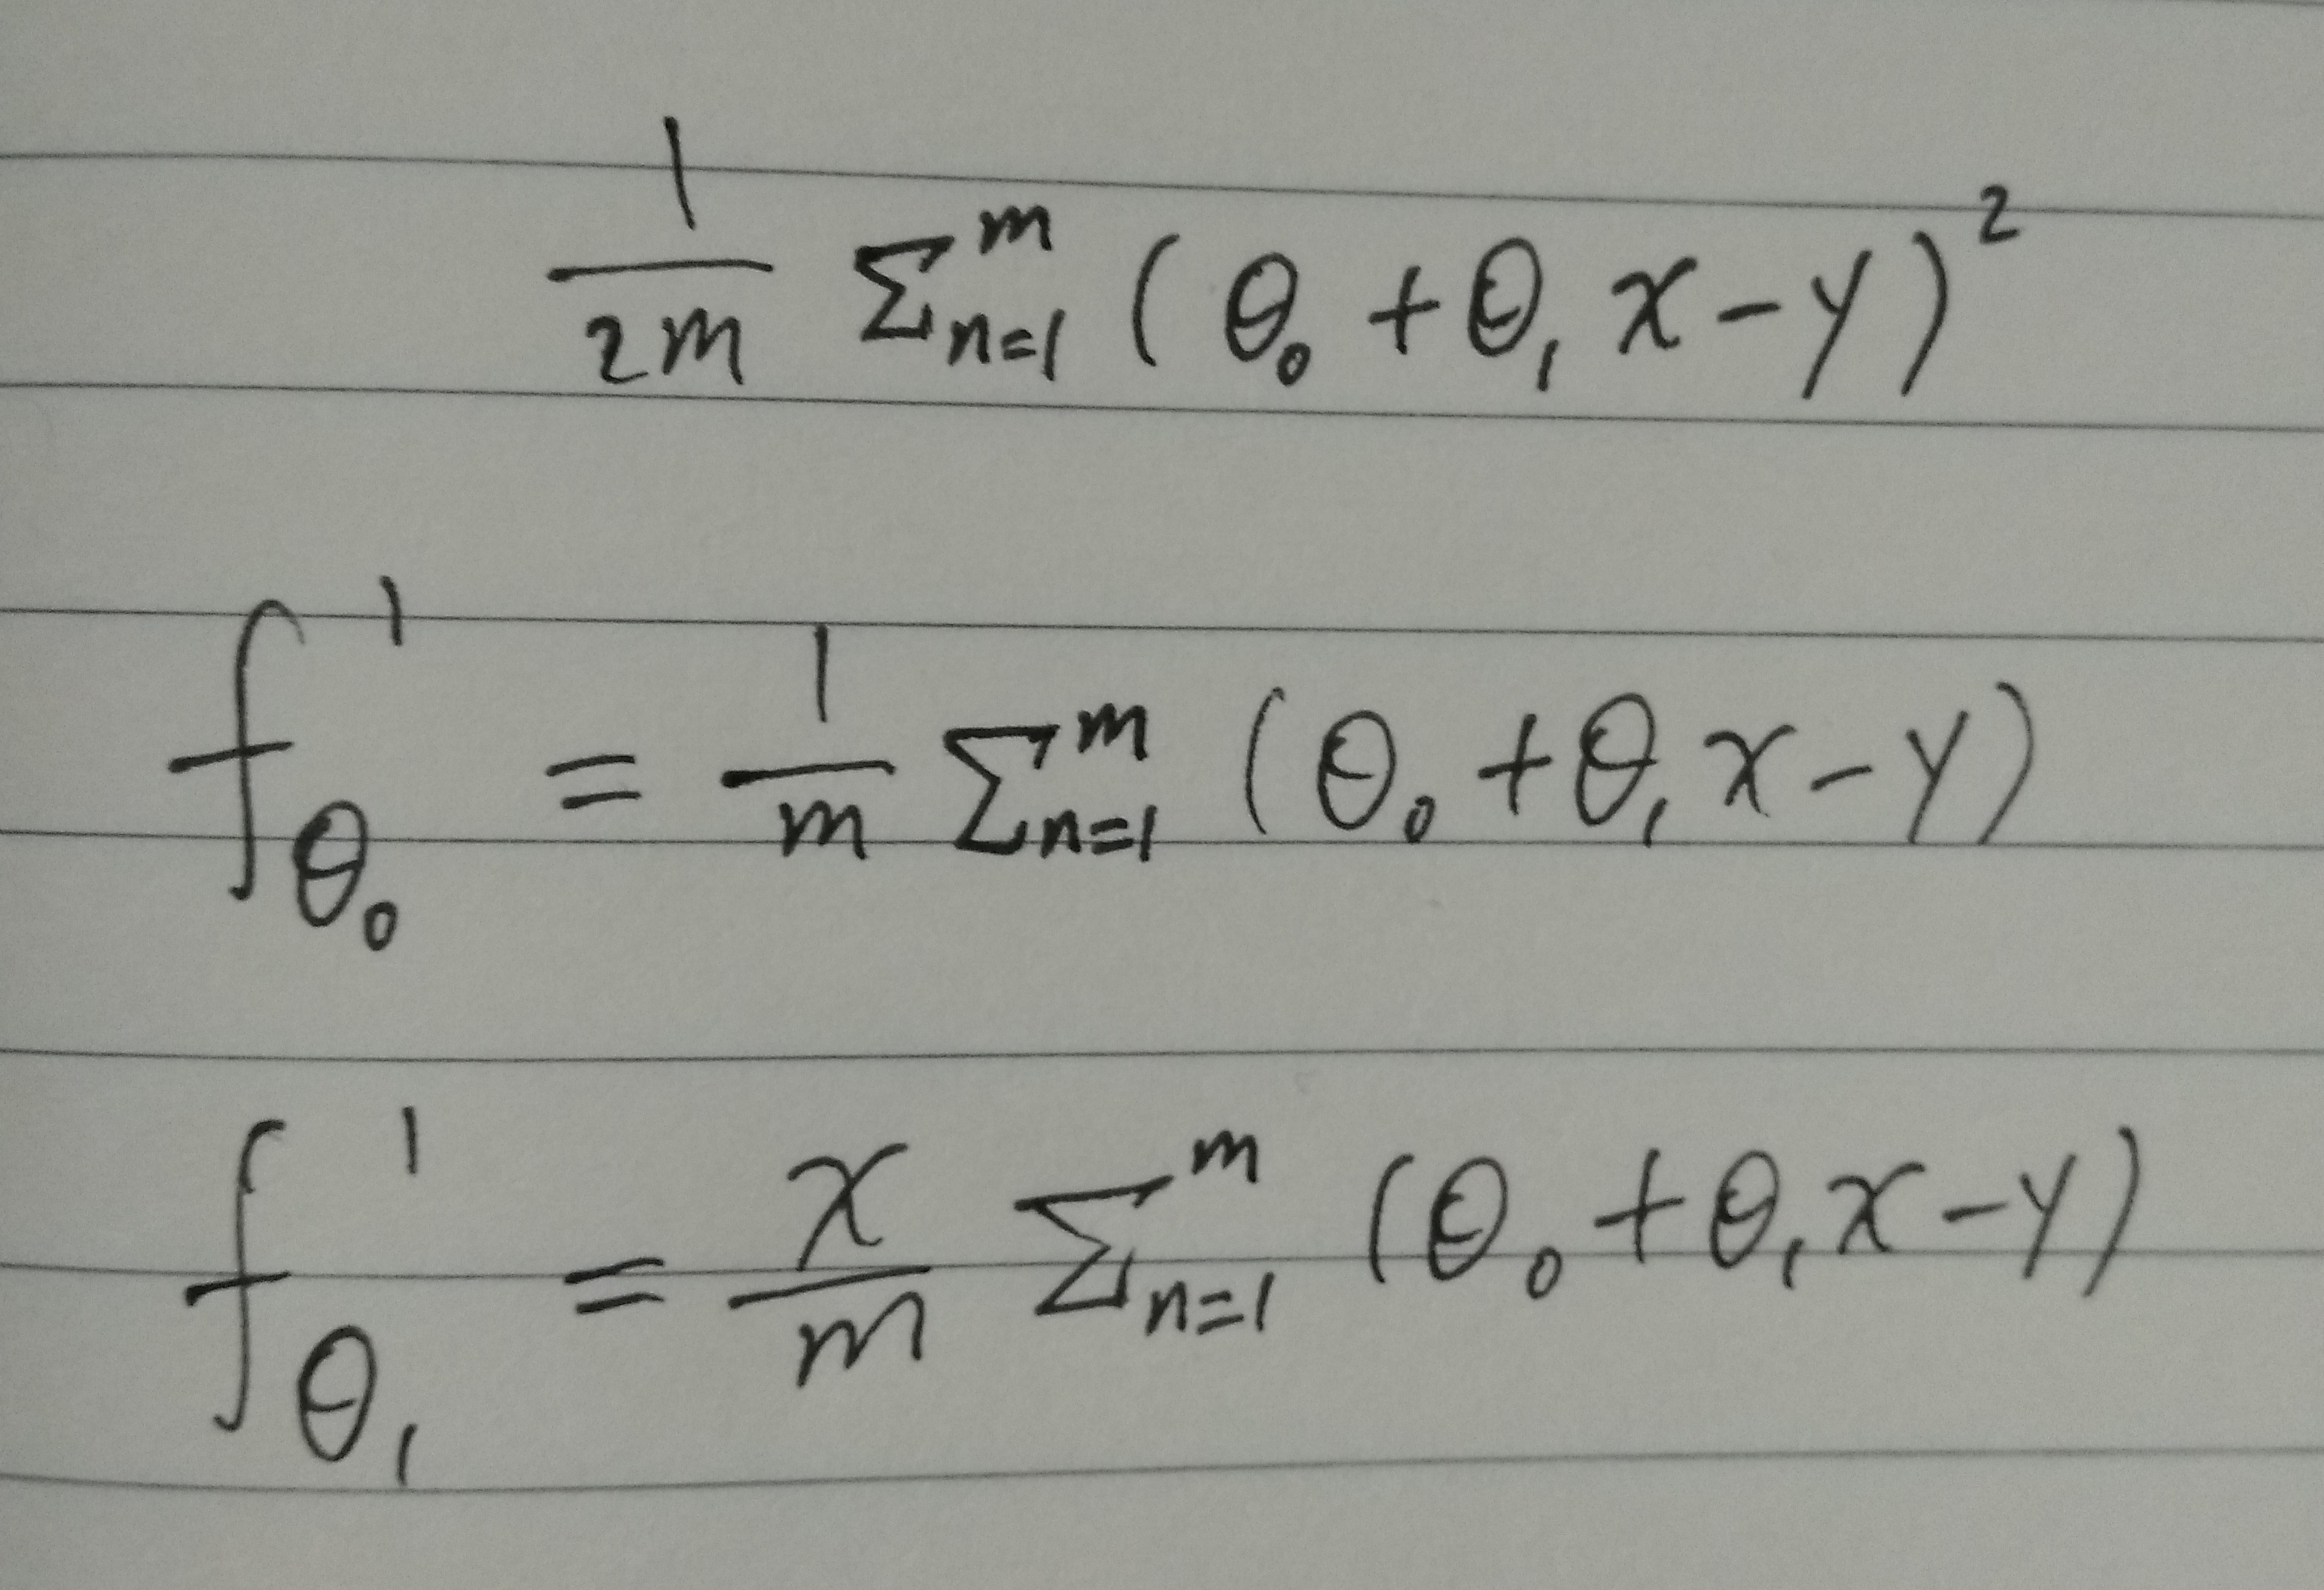 1/2m Σⁿ⁼¹ᵐ (θ₀ + θ₁ x - y)²
f'θ₀ = 1/m Σₙ₌₁ᵐ (θ₀ + θ₁ x - y)
f'θ₁ = x/m Σₙ₌₁ᵐ (θ₀ + θ₁ x - y)